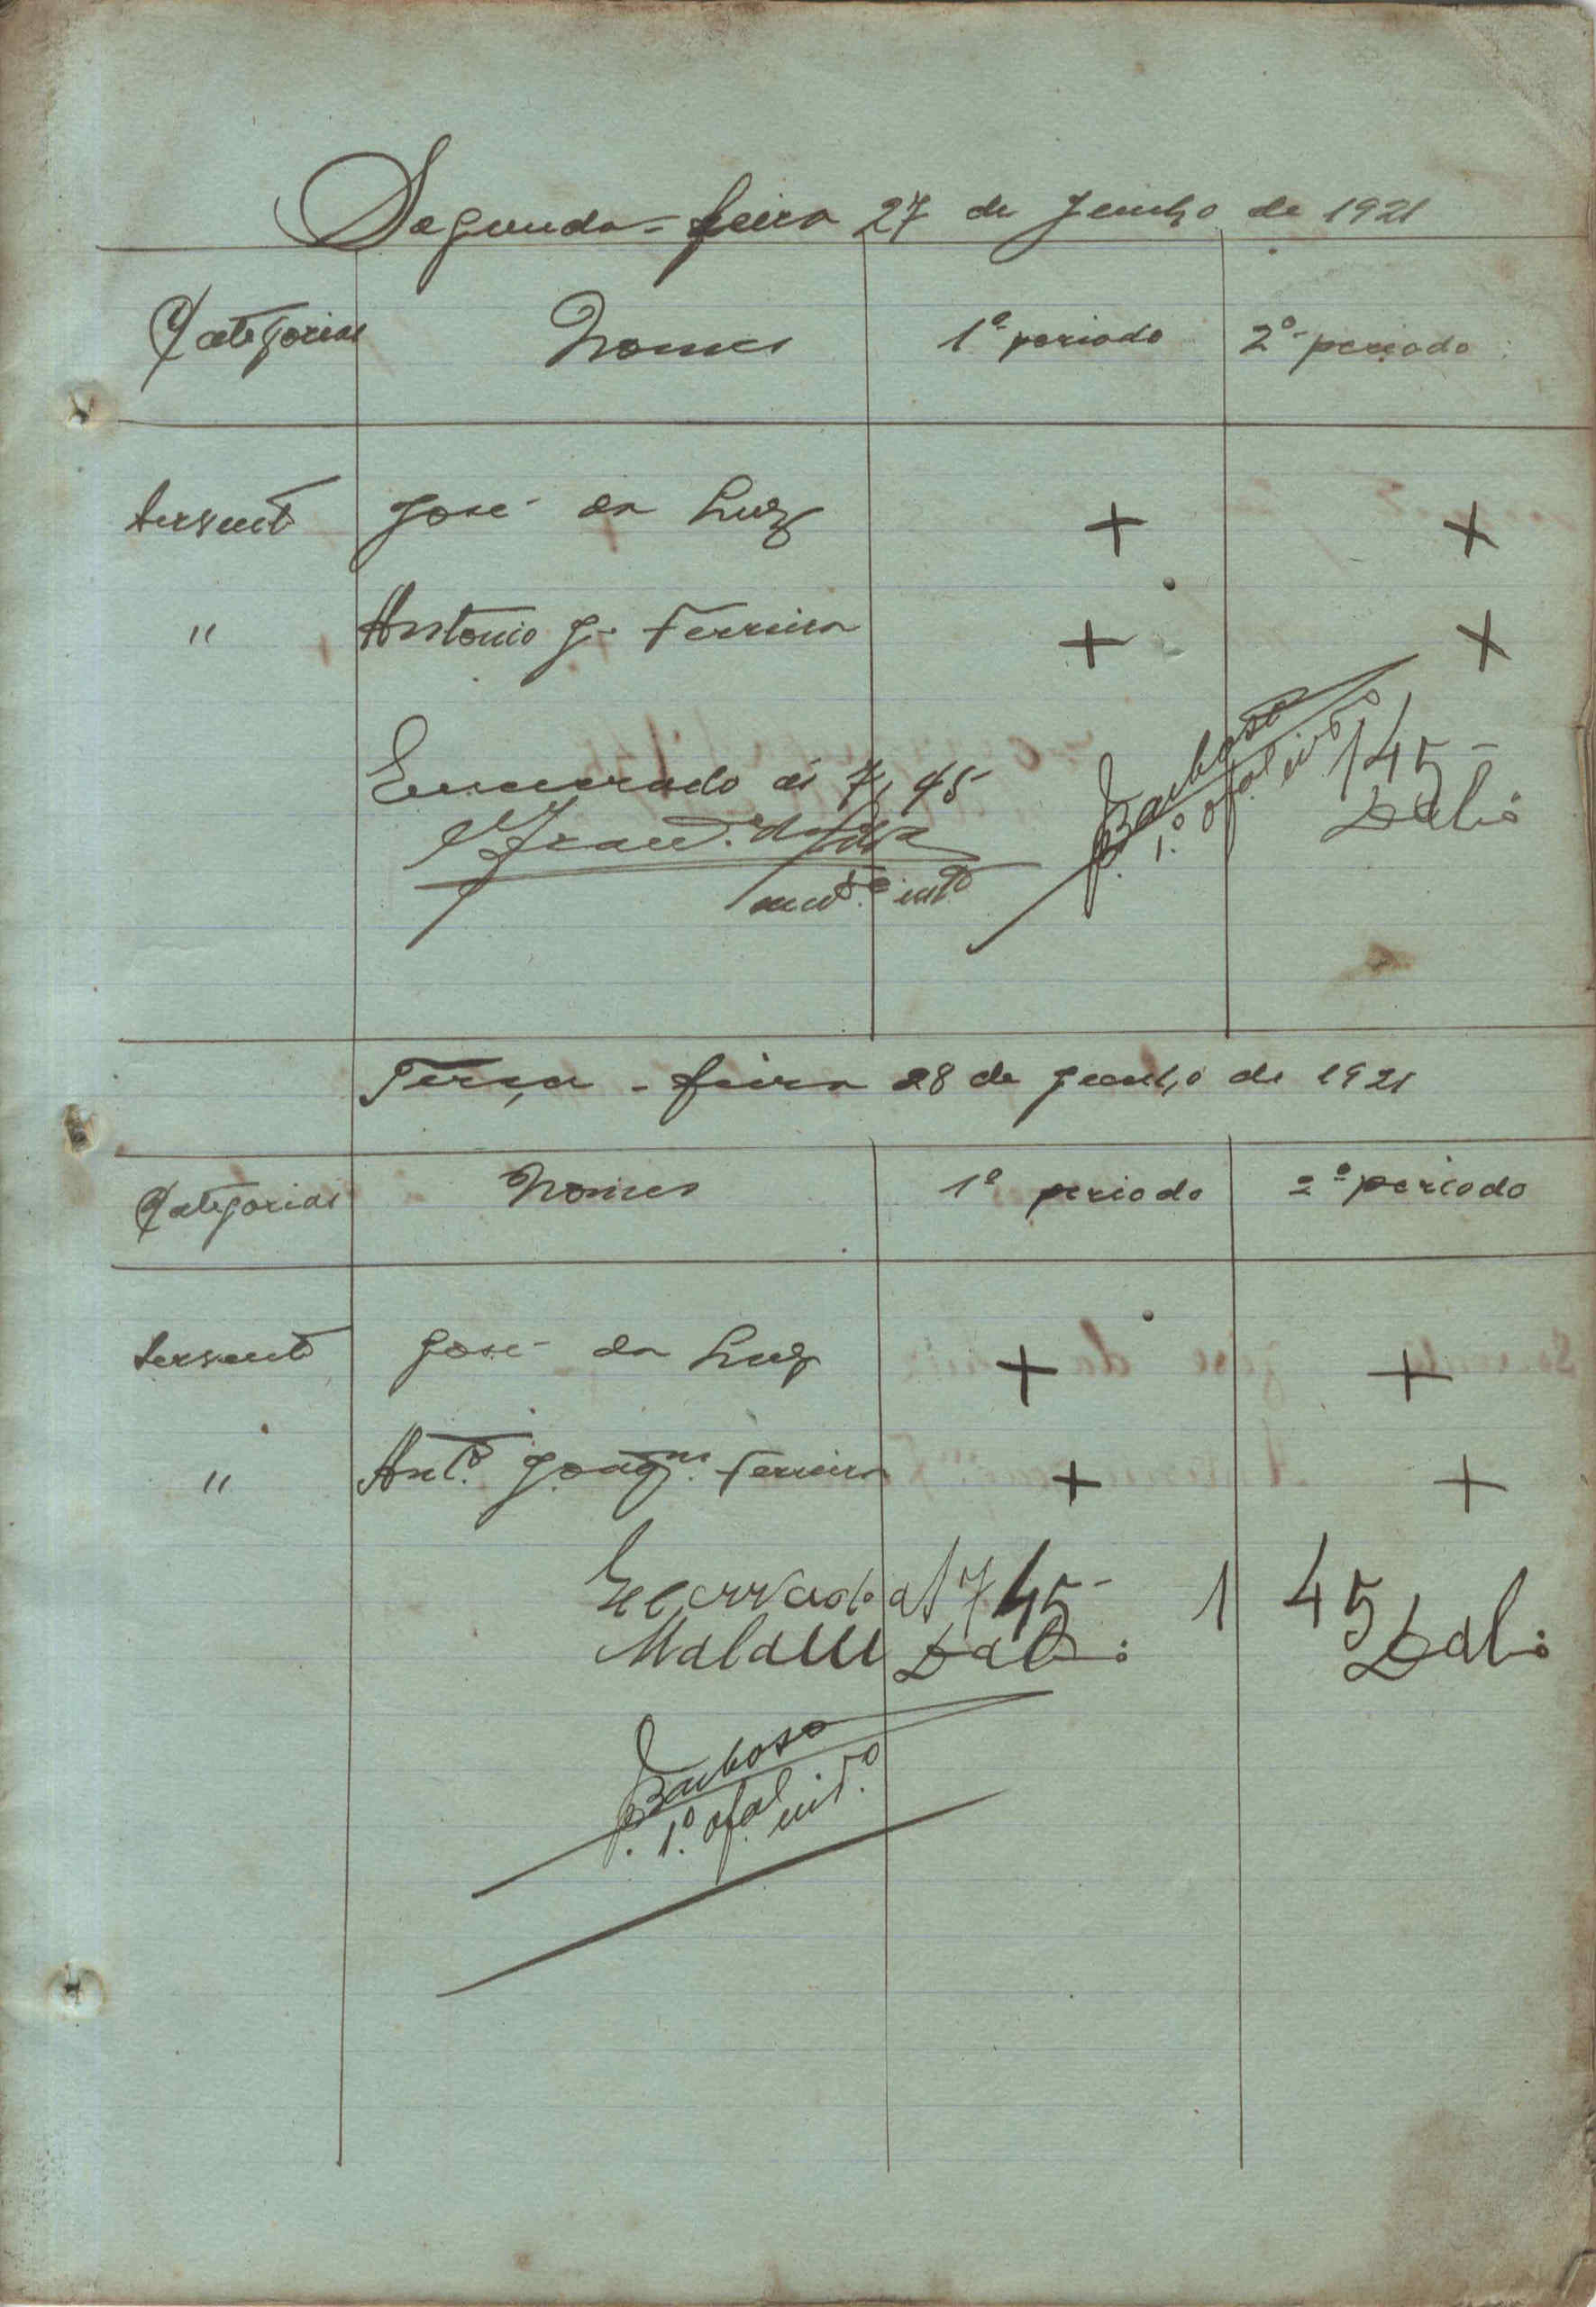 Segunda-feira 27 de Junho de 1921
Categorias Nomes 1º periodo 2º periodo
Servente José da Luz + +
" Antonio J. Ferreira + +
Encerrado ás 7,45
Barbosa
1.º ofal intº
1 45
Daló
Terça-feira 28 de Junho de 1921
Categorias Nomes 1º periodo 2º periodo
Servente José da Luz + +
" Antº. Joaqm. Ferreira + +
Encerrado as 7 45 1 45
Malam Daló Daló
Barbosa
1.º ofal int.º